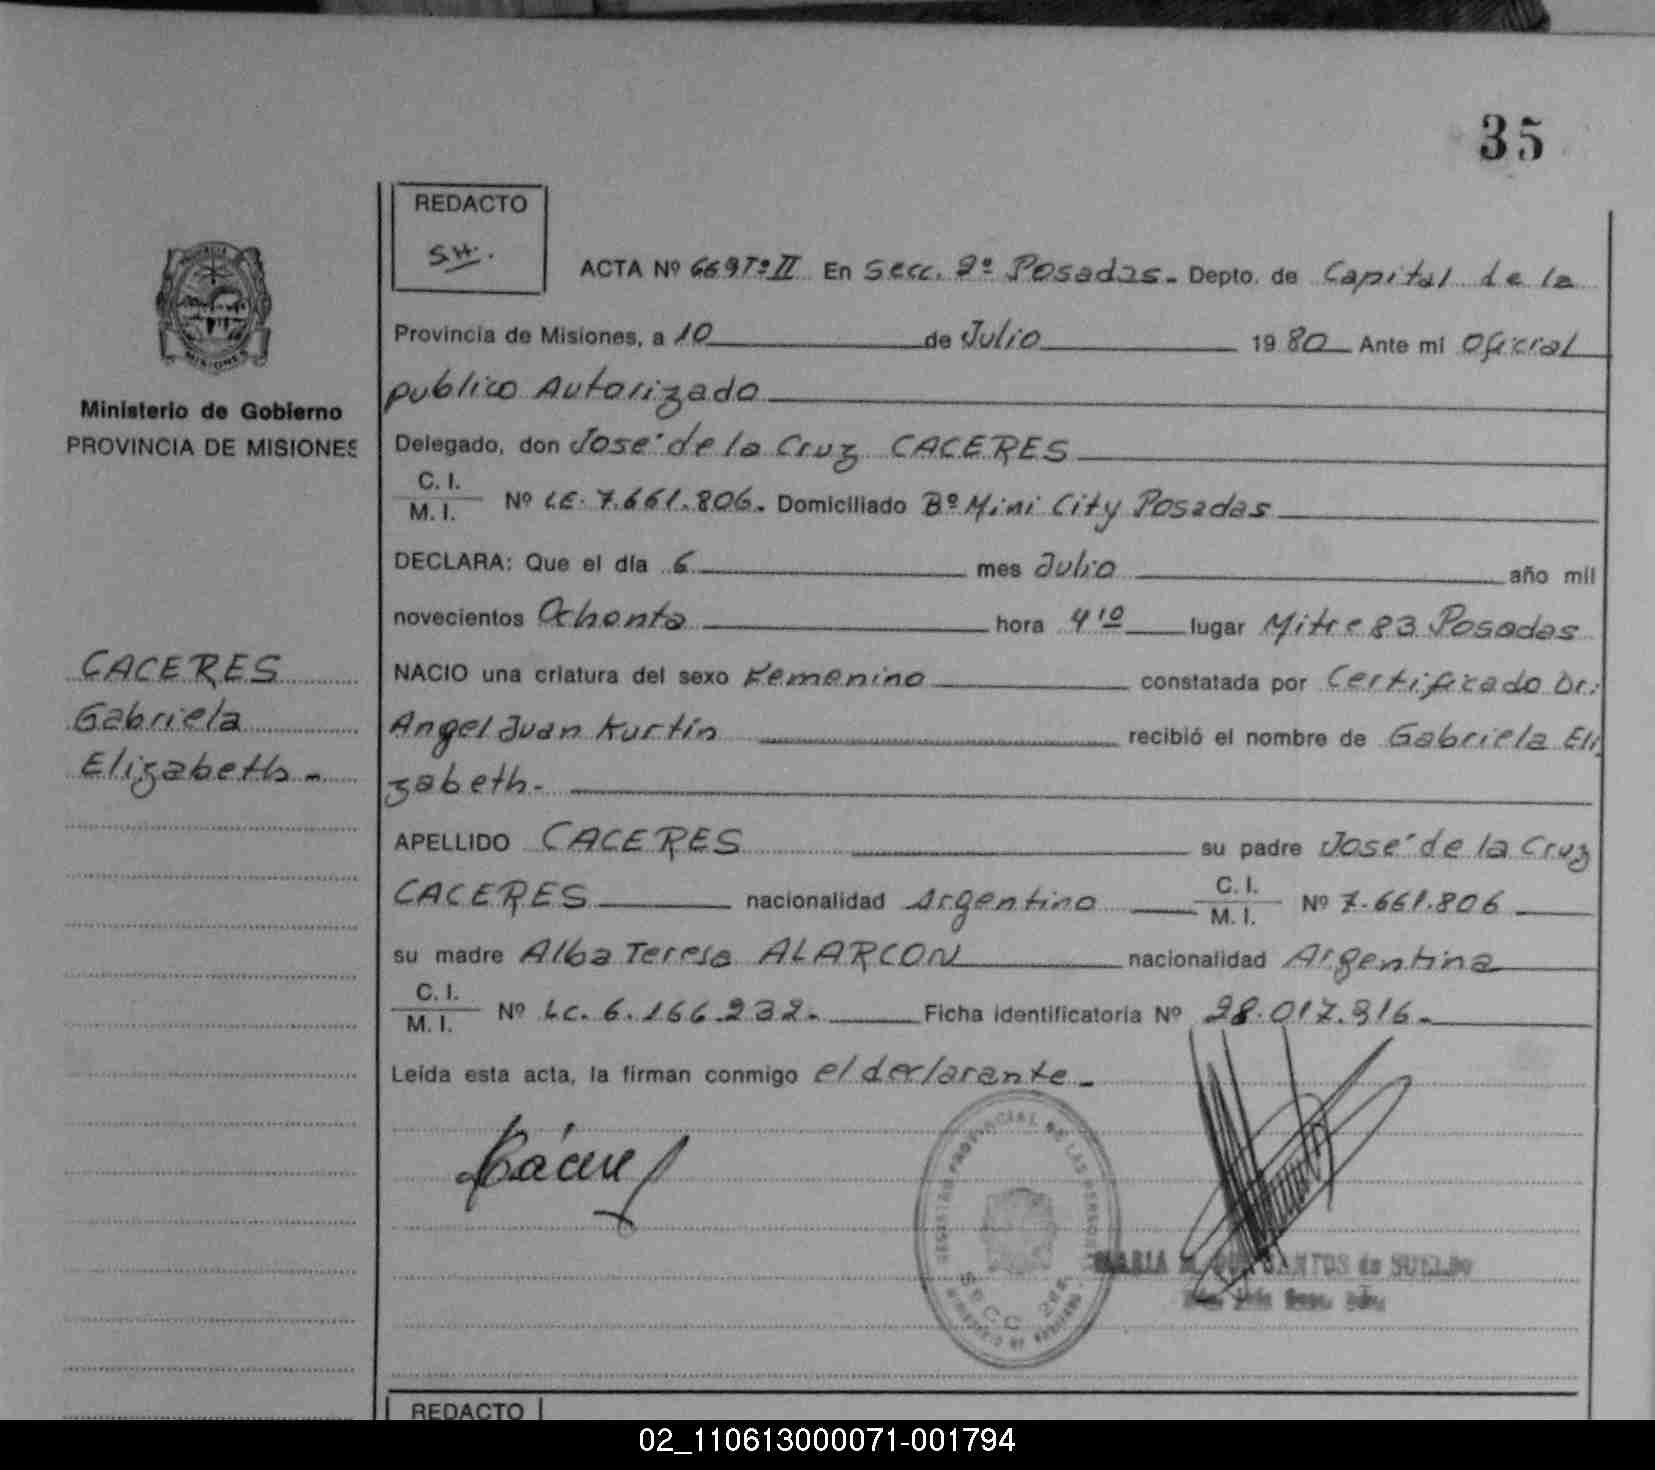 35
REDACTO
SH.
ACTA Nº 669 Tº II En Secc. 2º Posadas. Depto. de Capital de la
Provincia de Misiones, a 10 de Julio 1980 Ante mi Oficial
publico Autorizado
Ministerio de Gobierno
PROVINCIA DE MISIONES
Delegado, don José de la Cruz CACERES
C. I.
M. I. Nº LE. 7.661.806. Domiciliado Bº Mini City Posadas
DECLARA: Que el día 6 mes Julio año mil
novecientos Ochenta hora 4¹⁰ lugar Mitre 83 Posadas
CACERES
Gabriela
Elizabeth.-
NACIO una criatura del sexo Femenino constatada por Certificado Dr.:
Angel Juan Kurtin recibió el nombre de Gabriela Eli
zabeth.-
APELLIDO CACERES su padre José de la Cruz
CACERES nacionalidad Argentino C. I. M. I. Nº 7.661.806
su madre Alba Teresa ALARCON nacionalidad Argentina
C. I.
M. I. Nº LC. 6.166.232.- Ficha identificatoria Nº 28.017.316.-
Leída esta acta, la firman conmigo el declarante.-
Cáceres
REGISTRO PROVINCIAL DE LAS PERSONAS
SECC. 2da
MINISTERIO DE GOBIERNO
MARIA M. DOS SANTOS de SUELDO
REDACTO
02_110613000071-001794